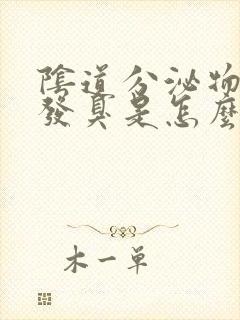 陰道分泌物
發臭是怎麼
木一單